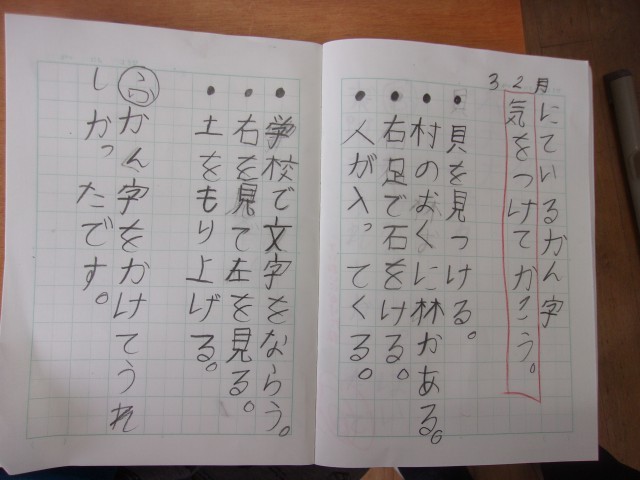 3.2月
にているかん字
気をつけてかこう。
・貝を見つける。
・村のおくに林がある。
・右足で石をける。
・人が入ってくる。
・学校で文字をならう。
・右を見て左を見る。
・土をもり上げる。
ふかん字をかけてうれ
しかったです。